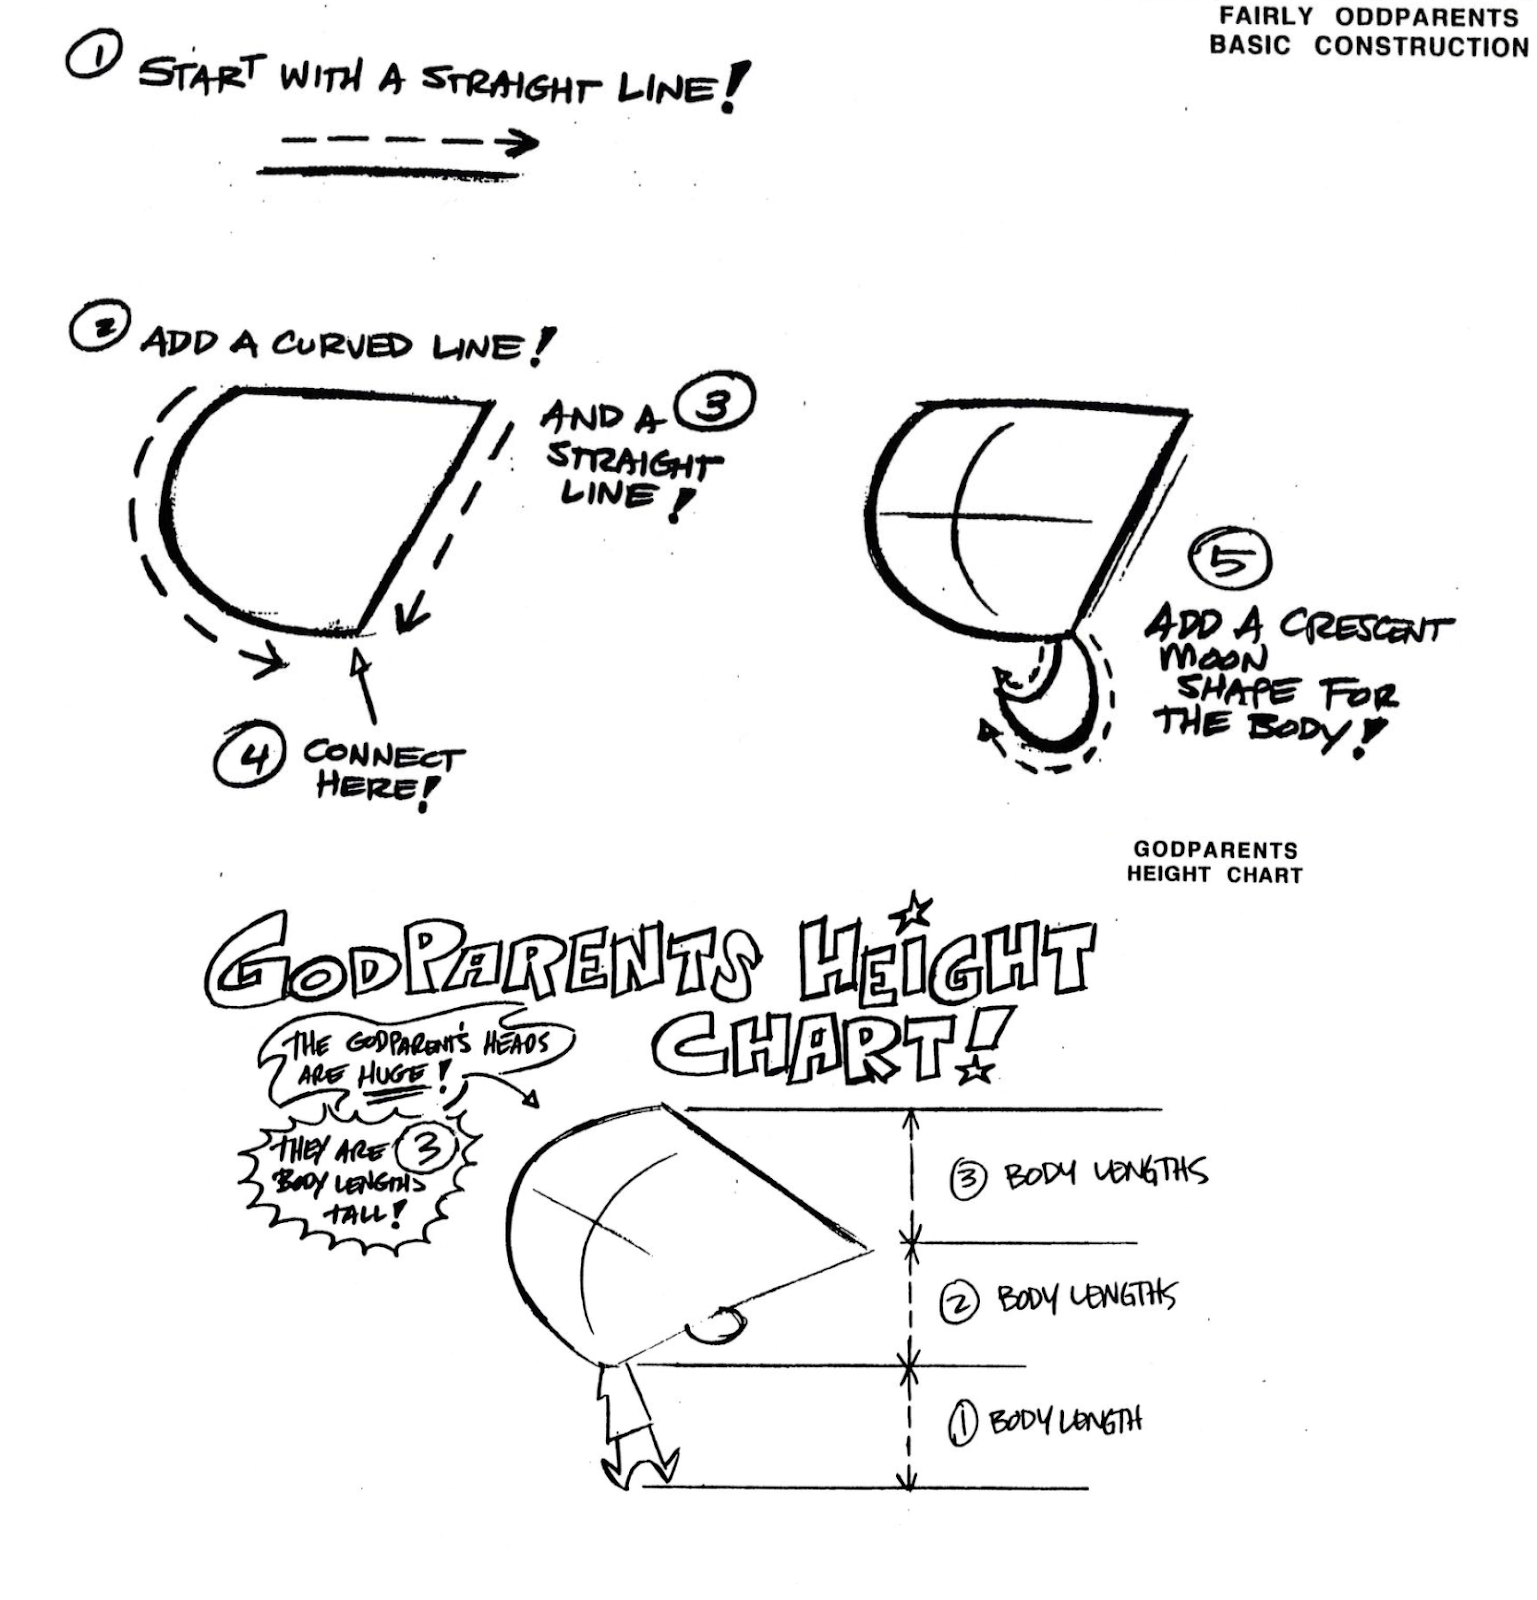 FAIRLY ODDPARENTS
BASIC CONSTRUCTION
1 START WITH A STRAIGHT LINE!
2 ADD A CURVED LINE!
AND A 3
STRAIGHT
LINE!
4 CONNECT
HERE!
5
ADD A CRESCENT
MOON
SHAPE FOR
THE BODY!
GODPARENTS
HEIGHT CHART
GODPARENTS HEIGHT
CHART!
THE GODPARENT'S HEADS
ARE HUGE!
THEY ARE 3
BODY LENGTHS
TALL!
3 BODY LENGTHS
2 BODY LENGTHS
1 BODY LENGTH